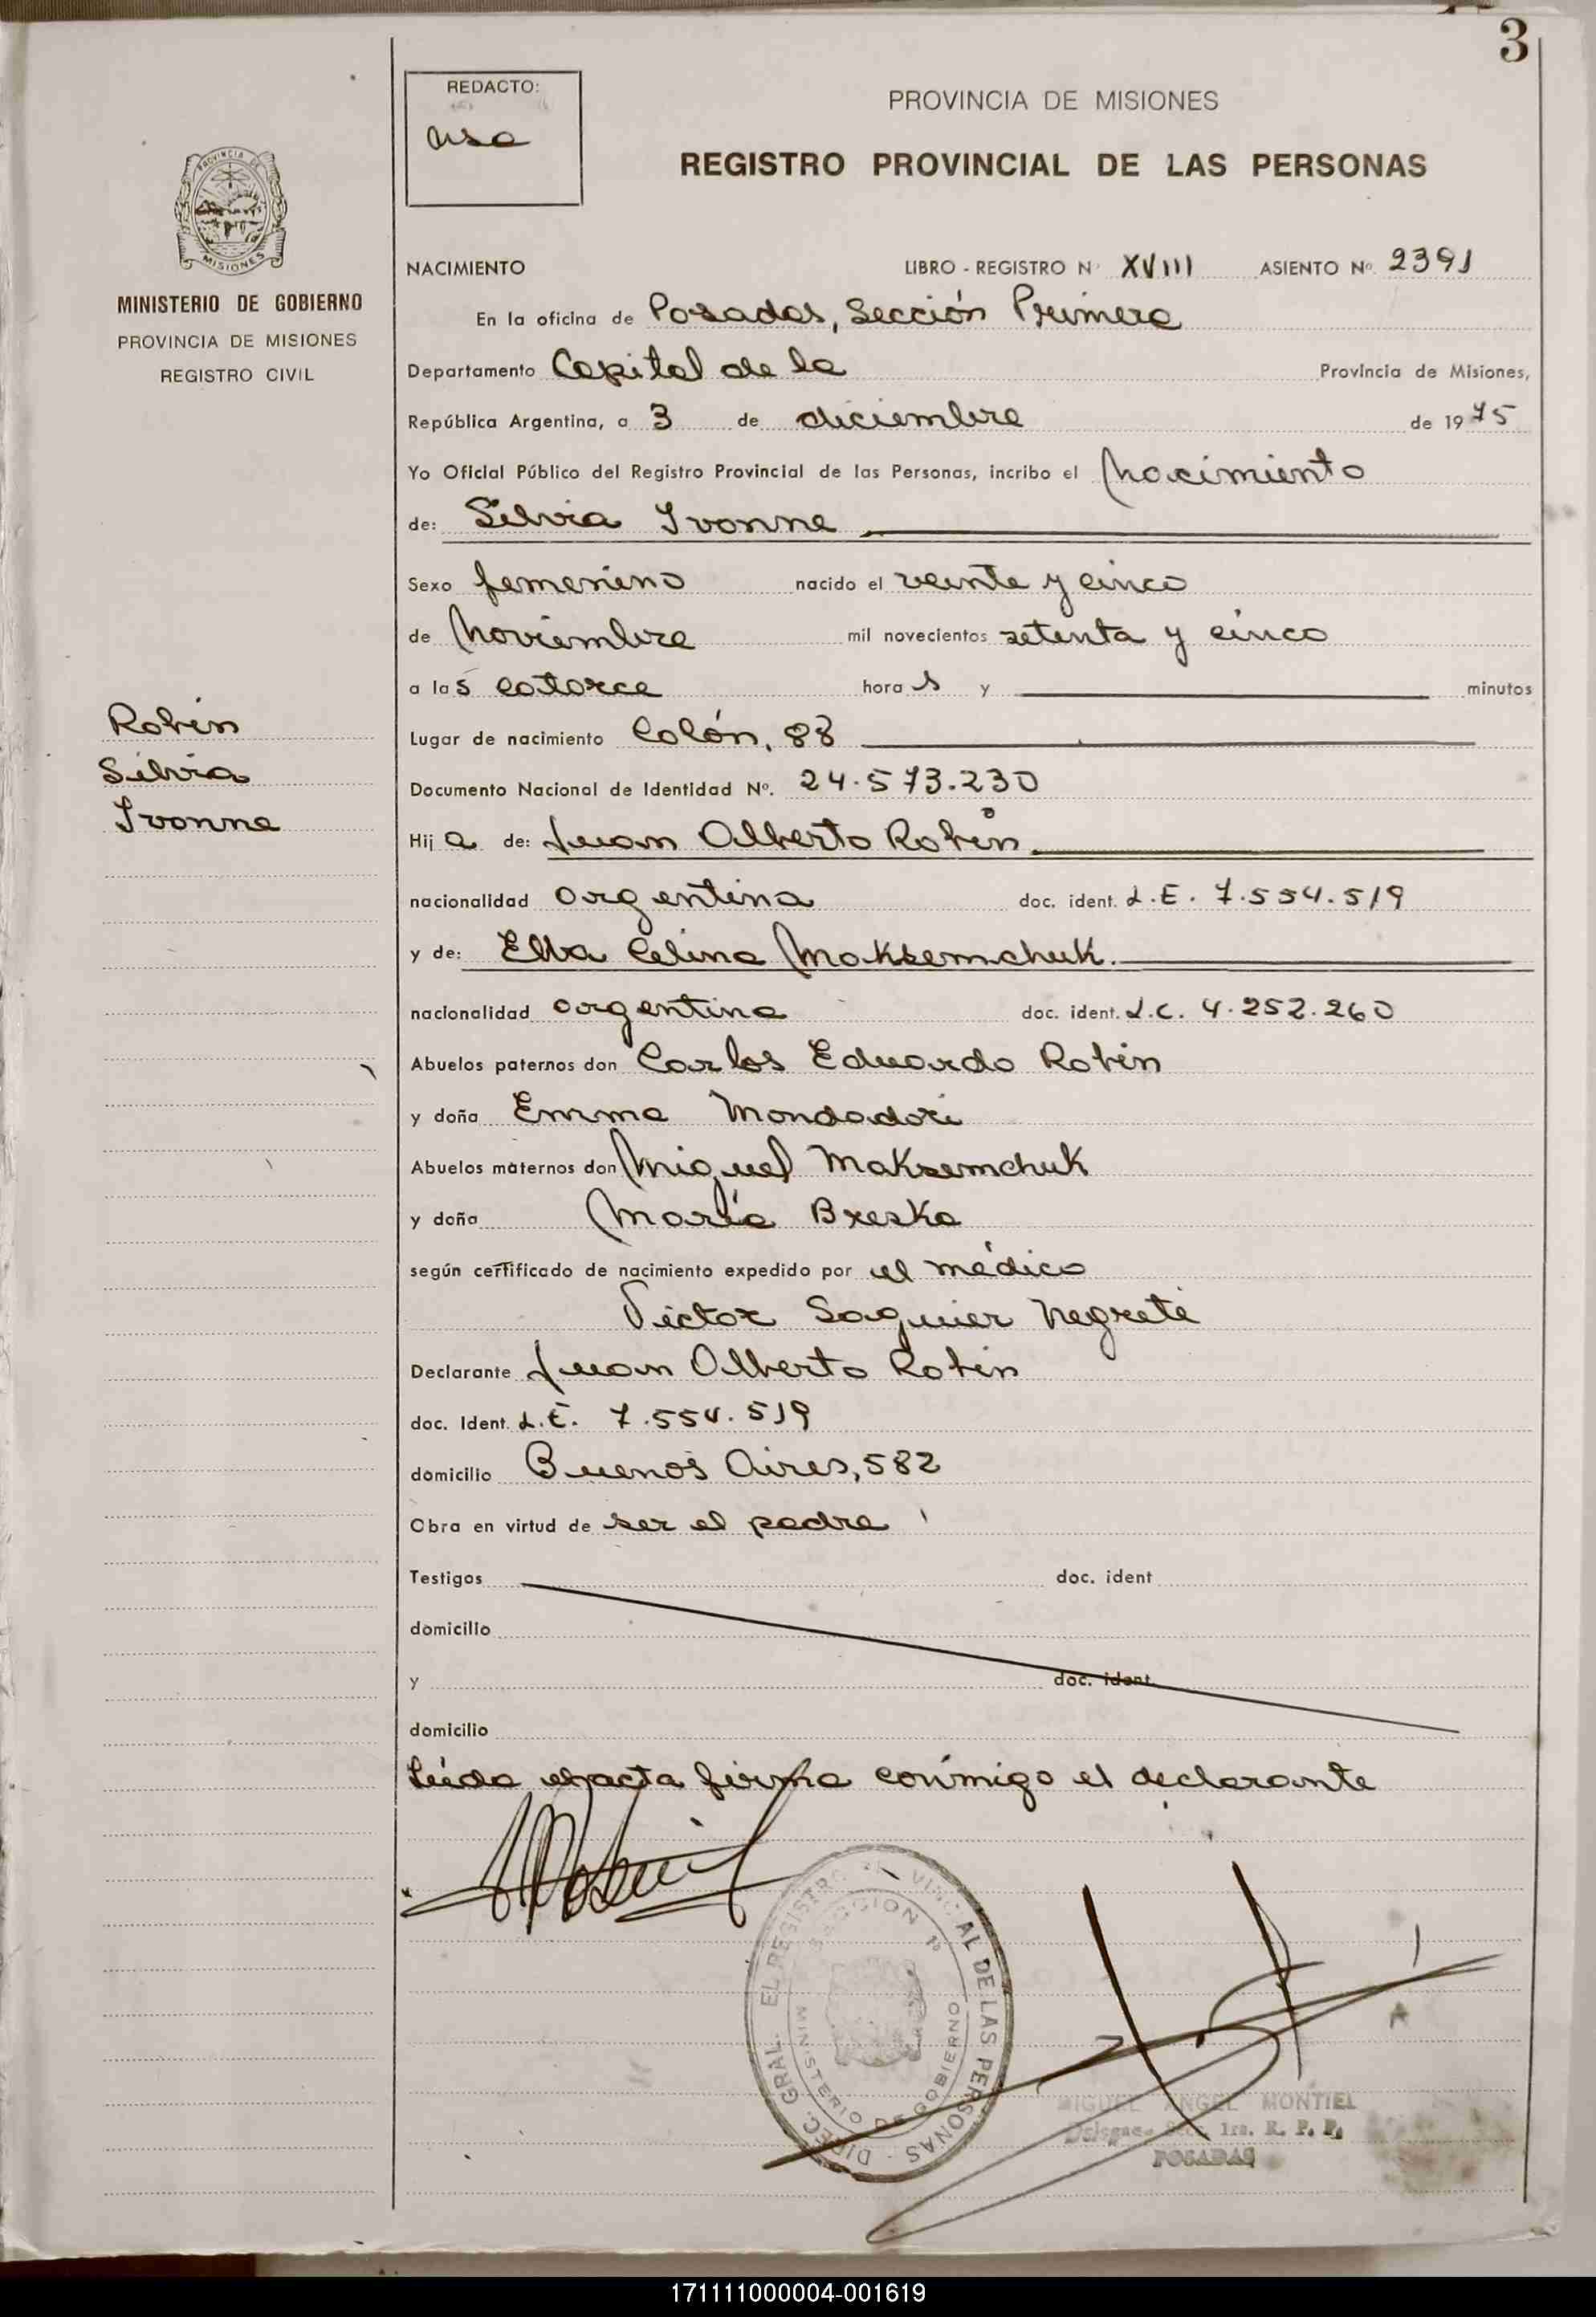 3
REDACTO:
PROVINCIA DE MISIONES
REGISTRO PROVINCIAL DE LAS PERSONAS
PROVINCIA DE
MISIONES
MINISTERIO DE GOBIERNO
PROVINCIA DE MISIONES
REGISTRO CIVIL
NACIMIENTO LIBRO - REGISTRO Nº XVIII ASIENTO Nº 2391
En la oficina de Posadas, Sección Primera
Departamento Capital de la Provincia de Misiones,
República Argentina, a 3 de diciembre de 1975
Yo Oficial Público del Registro Provincial de las Personas, incribo el Nacimiento
de: Silvia Ivonne
Sexo femenino nacido el veinte y cinco
de Noviembre mil novecientos setenta y cinco
a las catorce horas y minutos
Robin
Silvia
Ivonne
Lugar de nacimiento Colón, 88
Documento Nacional de Identidad Nº. 24.573.230
Hija de: Juan Alberto Robin
nacionalidad argentina doc. ident. L.E. 7.554.519
y de: Elba Celina Maksemchuk.
nacionalidad argentina doc. ident. L.C. 4.252.260
Abuelos paternos don Carlos Eduardo Robin
y doña Emma Mondadori
Abuelos maternos don Miguel Maksemchuk
y doña María Breska
según certificado de nacimiento expedido por el médico
Victor Saguier Negrete
Declarante Juan Alberto Robin
doc. Ident. L.E. 7.554.519
domicilio Buenos Aires, 582
Obra en virtud de ser el padre
Testigos doc. ident
domicilio
y doc. ident.
domicilio
Leída el acta firma conmigo el declarante
DIREC. GRAL. EL REGISTRO AL DE LAS PERSONAS
SECCION 1º
MINISTERIO DE GOBIERNO
MIGUEL ANGEL MONTIEL
1ra. R. P. P.
POSADAS
171111000004-001619